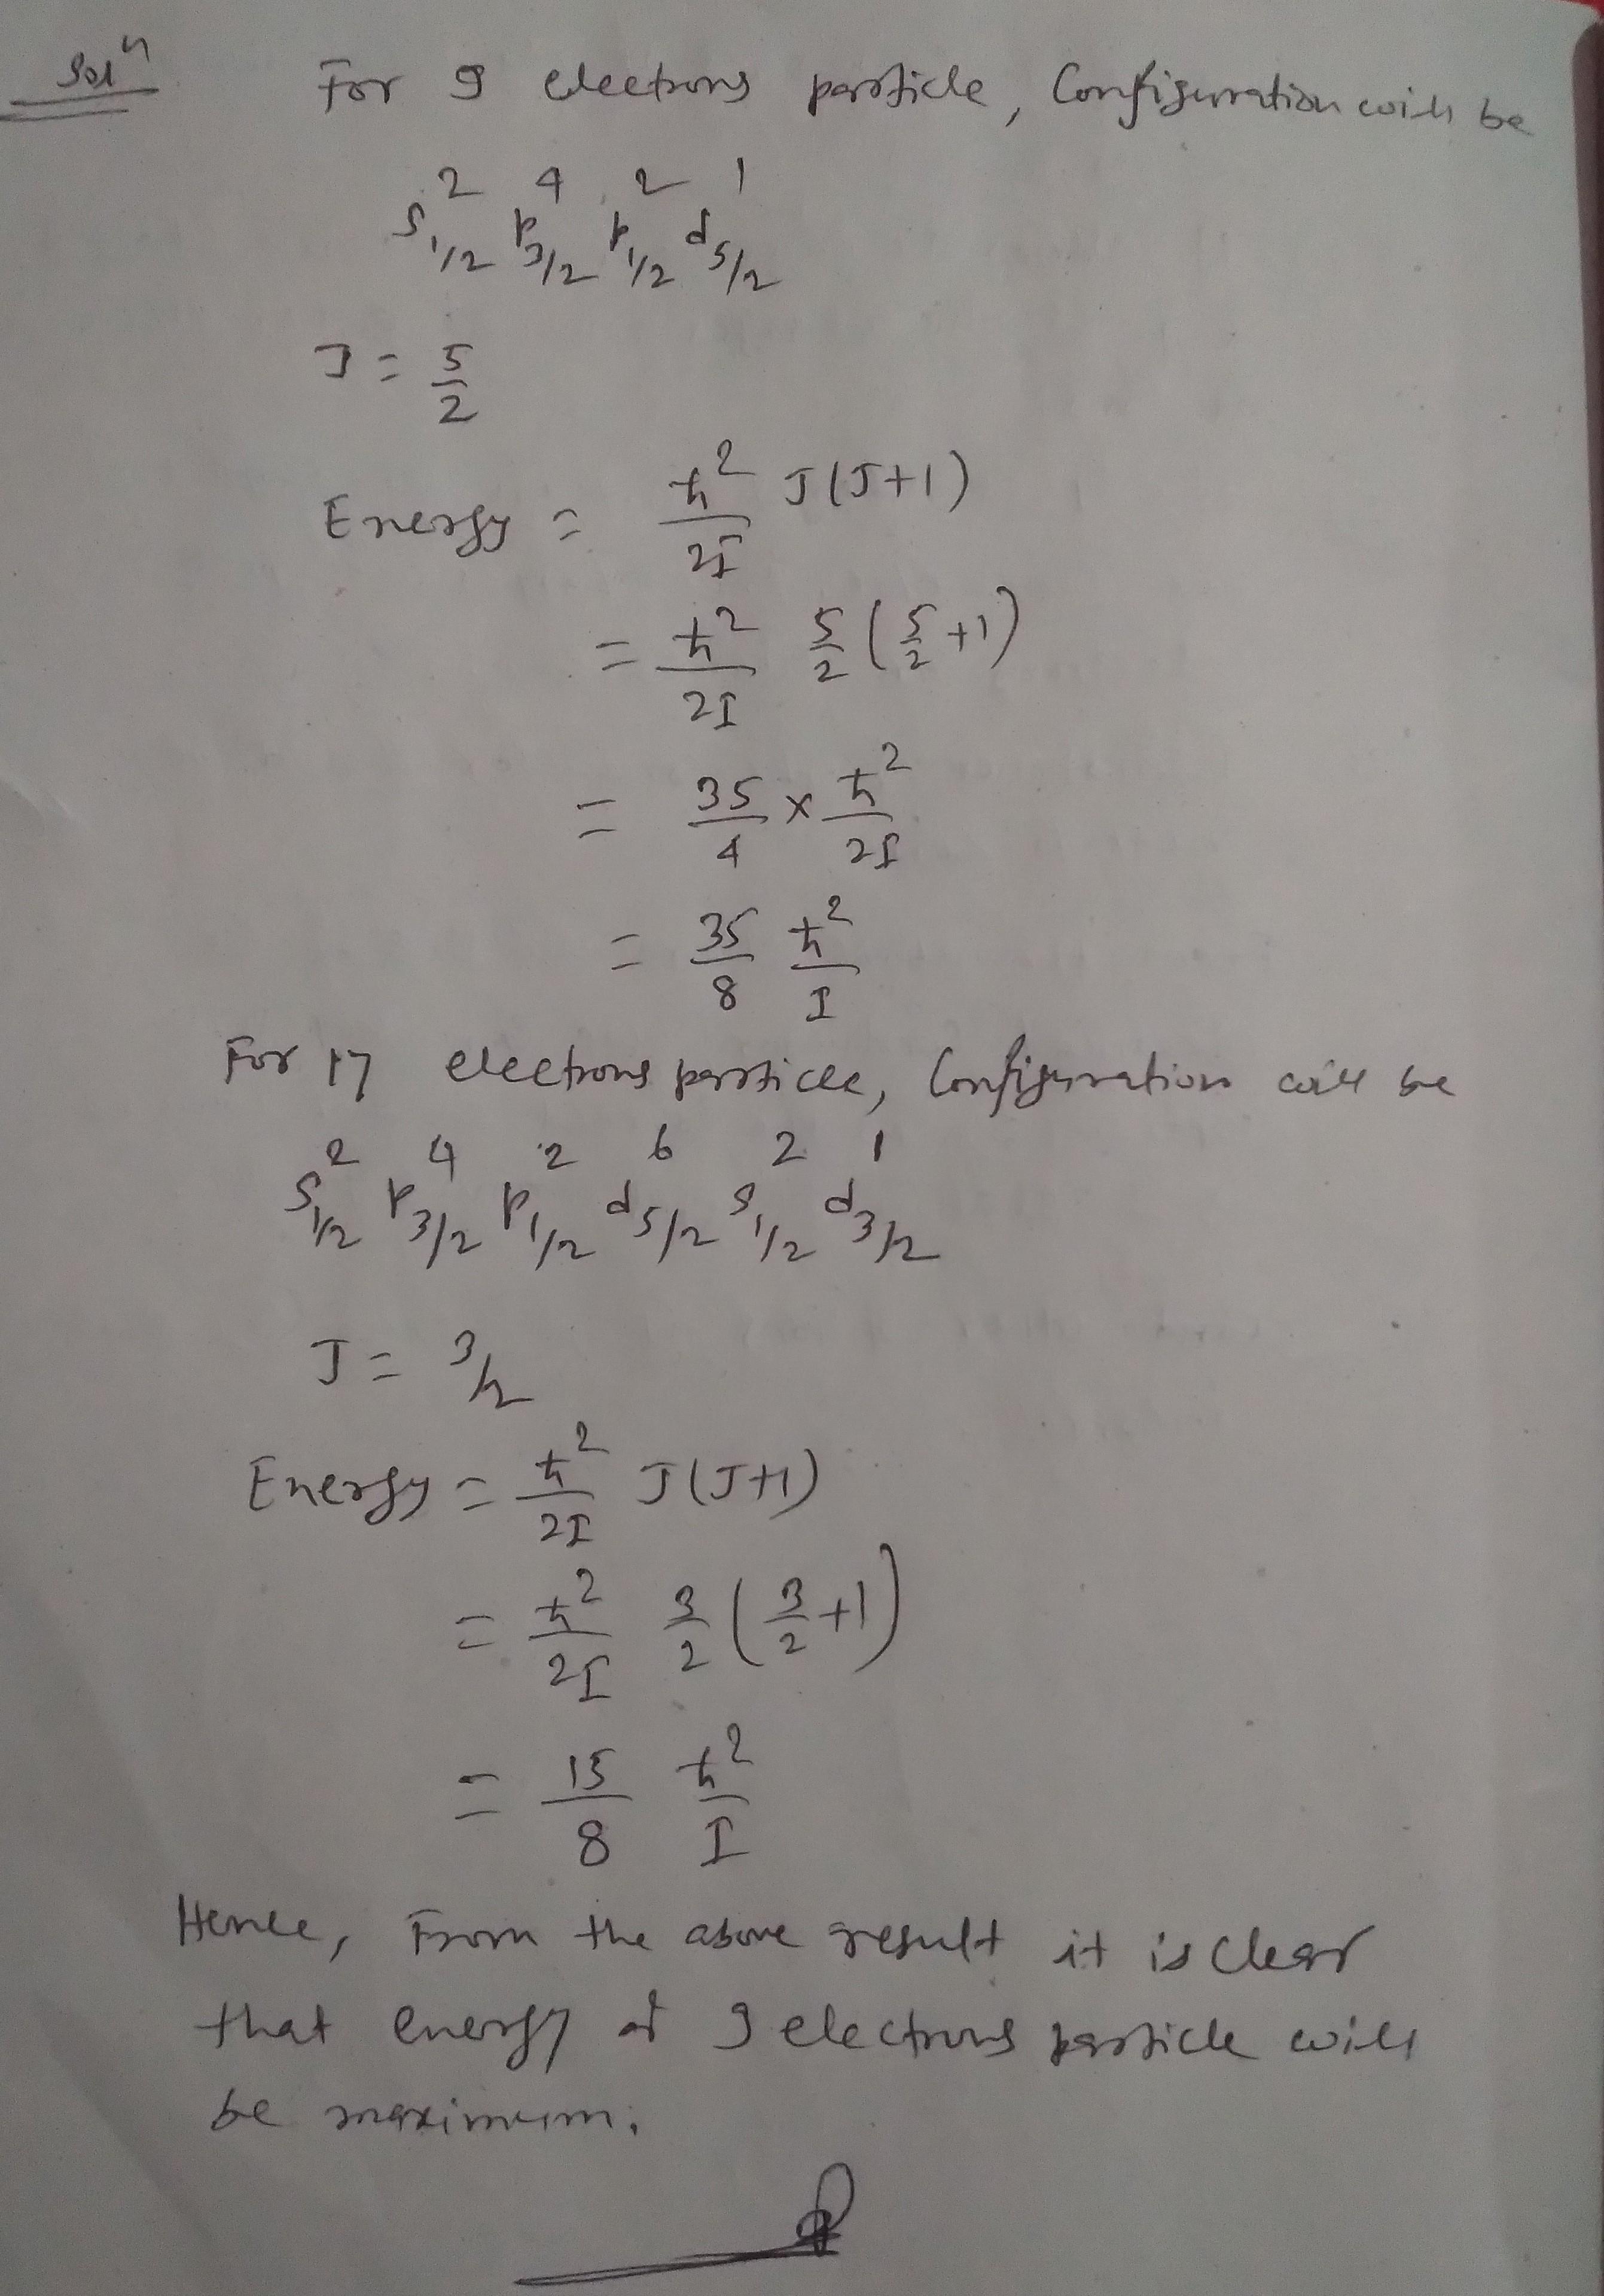 Solⁿ For 9 electrons particle, Configuration will be
s²₁/₂ p⁴₃/₂ p²₁/₂ d¹₅/₂
J = 5/2
Energy = ħ²/2I J(J+1)
= ħ²/2I 5/2 (5/2 +1)
= 35/4 × ħ²/2I
= 35/8 ħ²/I
For 17 electrons particle, Configuration will be
s²₁/₂ p⁴₃/₂ p²₁/₂ d⁶₅/₂ s²₁/₂ d¹₃/₂
J = 3/2
Energy = ħ²/2I J(J+1)
= ħ²/2I 3/2 (3/2 +1)
= 15/8 ħ²/I
Hence, From the above result it is clear
that energy of 9 electrons particle will
be maximum.